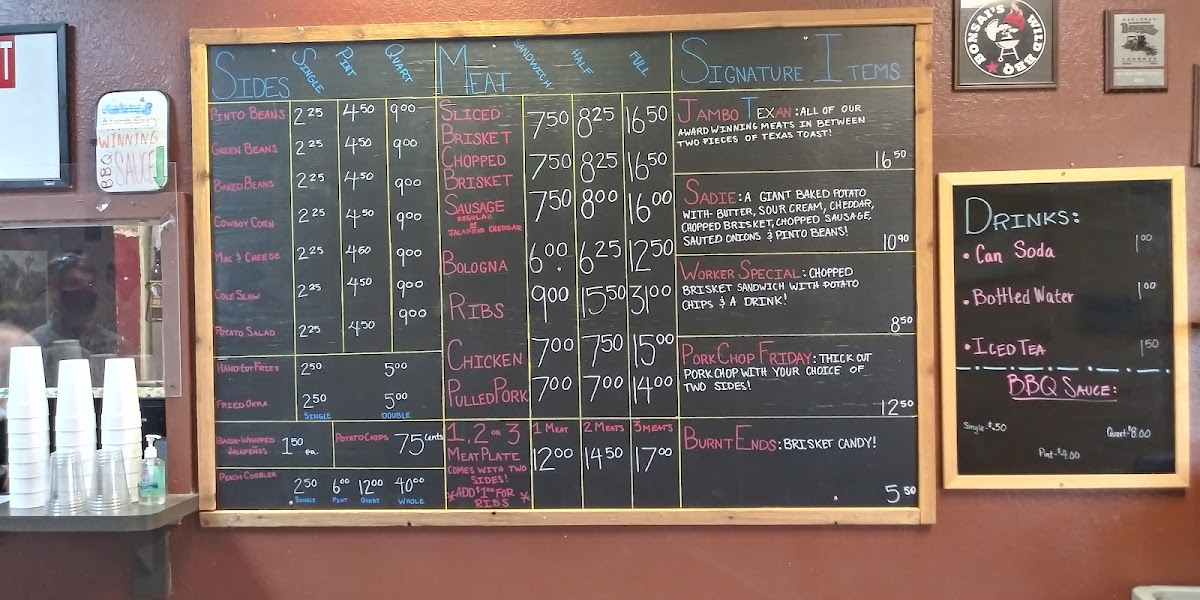 SIDES SINGLE PINT QUART
PINTO BEANS 2 25 4 50 9 00
GREEN BEANS 2 25 4 50 9 00
BAKED BEANS 2 25 4 50 9 00
COWBOY CORN 2 25 4 50 9 00
MAC & CHEESE 2 25 4 50 9 00
COLE SLAW 2 25 4 50 9 00
POTATO SALAD 2 25 4 50 9 00
HAND CUT FRIES 2 50 5 00
FRIED OKRA 2 50 5 00
SINGLE DOUBLE
BACON-WRAPPED
JALAPEÑOS 1 50 ea. POTATO CHIPS 75 cents
PEACH COBBLER
2 50 6 00 12 00 40 00
SINGLE PINT QUART WHOLE
MEAT SANDWICH HALF FULL
SLICED
BRISKET 7 50 8 25 16 50
CHOPPED
BRISKET 7 50 8 25 16 50
SAUSAGE 7 50 8 00 16 00
REGULAR
OR
JALAPENO CHEDDAR
BOLOGNA 6 00 6 25 12 50
RIBS 9 00 15 50 31 00
CHICKEN 7 00 7 50 15 00
PULLED PORK 7 00 7 00 14 00
1, 2 OR 3 1 MEAT 2 MEATS 3 MEATS
MEAT PLATE 12 00 14 50 17 00
COMES WITH TWO
SIDES!
*ADD $1 00 FOR
RIBS*
SIGNATURE ITEMS
JAMBO TEXAN: ALL OF OUR
AWARD WINNING MEATS IN BETWEEN
TWO PIECES OF TEXAS TOAST!
16 50
SADIE: A GIANT BAKED POTATO
WITH BUTTER, SOUR CREAM, CHEDDAR,
CHOPPED BRISKET, CHOPPED SAUSAGE
SAUTED ONIONS & PINTO BEANS!
10 90
WORKER SPECIAL: CHOPPED
BRISKET SANDWICH WITH POTATO
CHIPS & A DRINK!
8 50
PORK CHOP FRIDAY: THICK CUT
PORK CHOP WITH YOUR CHOICE OF
TWO SIDES!
12 50
BURNT ENDS: BRISKET CANDY!
5 50
DRINKS:
• CAN SODA 1 00
• BOTTLED WATER 1 00
• ICED TEA 1 50
BBQ SAUCE:
Single-$.50
Quart-$8.00
Pint-$4.00
BONSAI'S WILD BBQ
WINNING
BBQ SAUCE
T